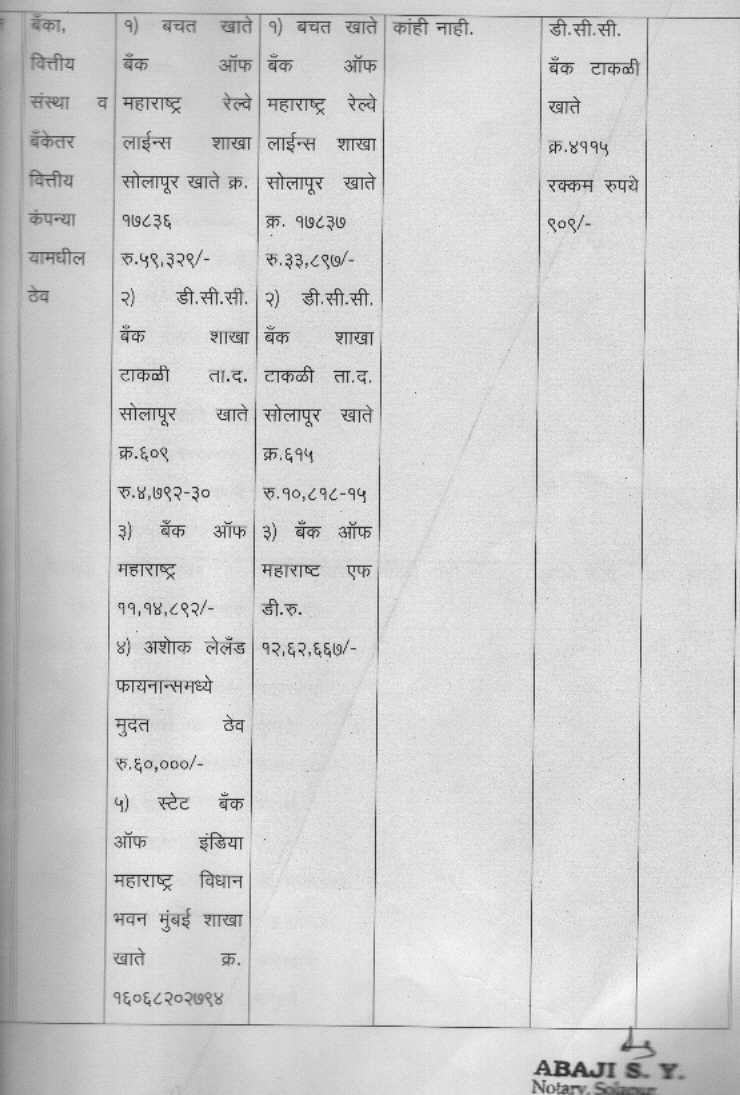 बँका,
वित्तीय
संस्था व
बँकेतर
वित्तीय
कंपन्या
यामधील
ठेव
१) बचत खाते
बँक ऑफ
महाराष्ट्र रेल्वे
लाईन्स शाखा
सोलापूर खाते क्र.
१७८३६
रु.५९,३२९/-
२) डी.सी.सी.
बँक शाखा
टाकळी ता.द.
सोलापूर खाते
क्र.६०९
रु.४,७९२-३०
३) बँक ऑफ
महाराष्ट्र
११,१४,८९२/-
४) अशोक लेलँड
फायनान्समध्ये
मुदत ठेव
रु.६०,०००/-
५) स्टेट बँक
ऑफ इंडिया
महाराष्ट्र विधान
भवन मुंबई शाखा
खाते क्र.
१६०६८२०२७९४
१) बचत खाते
बँक ऑफ
महाराष्ट्र रेल्वे
लाईन्स शाखा
सोलापूर खाते
क्र. १७८३७
रु.३३,८९७/-
२) डी.सी.सी.
बँक शाखा
टाकळी ता.द.
सोलापूर खाते
क्र.६१५
रु.१०,८१८-१५
३) बँक ऑफ
महाराष्ट एफ
डी.रु.
१२,६२,६६७/-
कांही नाही.
डी.सी.सी.
बँक टाकळी
खाते
क्र.४११५
रक्कम रुपये
९०९/-
ABAJI S. Y.
Notary, Solapur